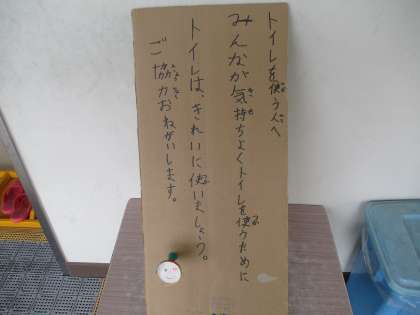 トイレを使う人へ
みんなが気持ちよくトイレを使うために
トイレは、きれいに使いましょう。
ご協力おねがいします。